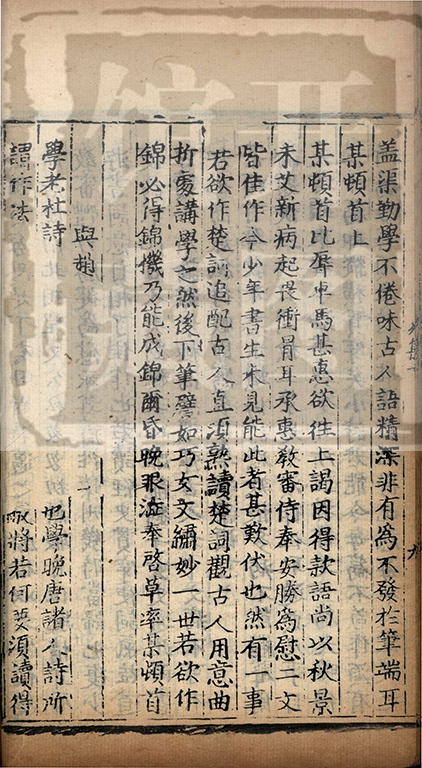 盖渠勤學不倦味古人語精深非有為不發扵筆端耳
某頓首上
某頓首比辱車馬甚惠欲徃上謁因得款語尚以秋景
未艾新病起畏衝冒耳承惠教審侍奉安勝為慰二文
皆佳作今少年書生未見能此者甚歎伏也然有一事
若欲作楚詞追配古人直湏熟讀楚詞觀古人用意曲
折處講學之然後下筆譬如巧女文繡妙一世若欲作
錦必得錦機乃能成錦爾昏晚眼澁奉啓草率某頓首
與趙
學老杜詩 也學晚唐諸人詩所
謂作法 將若何要湏讀得